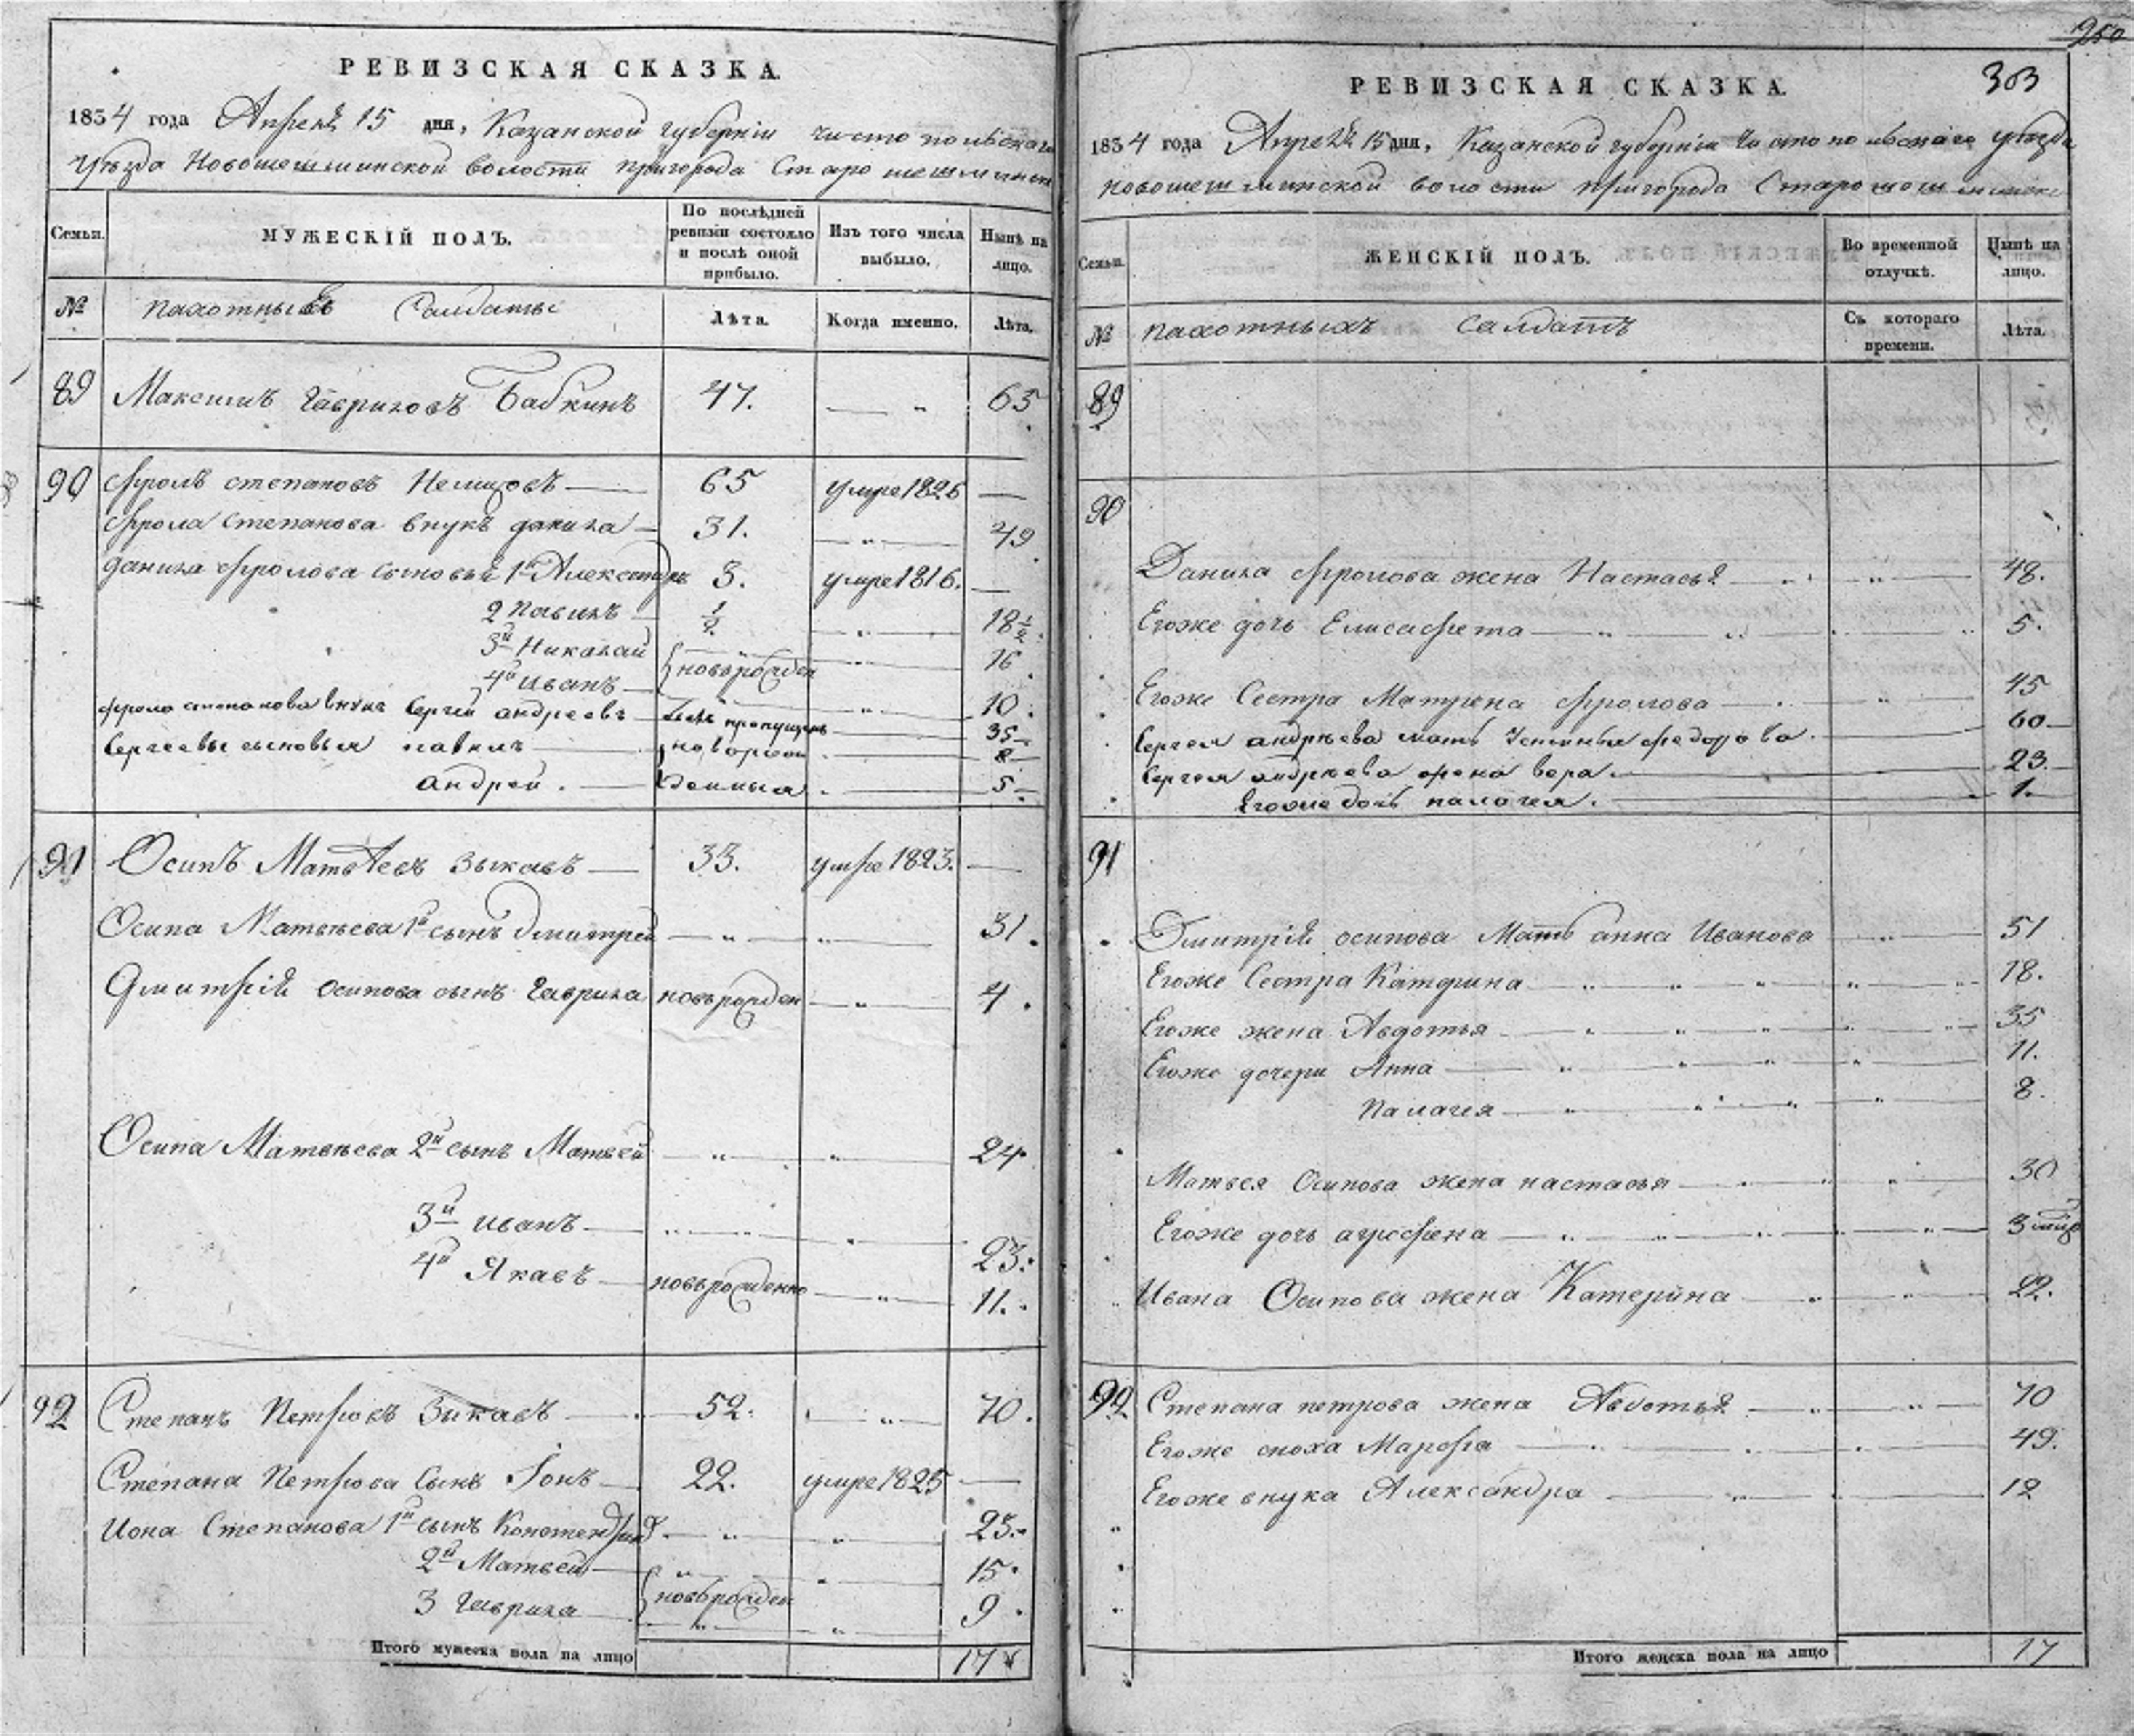 РЕВИЗСКАЯ СКАЗКА.
1834 года Апреля 15 дня, Казанской губернiи Чистопольскаго
Уѣзда Новошешминской волости пригорода Старошешминск
Семьи. МУЖЕСКІЙ ПОЛЪ. По послѣдней ревизіи состояло и послѣ оной прибыло. Изъ того числа выбыло. Нынѣ на лицо.
№ пахотныхъ Салдатъ Лѣта. Когда именно. Лѣта.
89 Максимъ Гавриловъ Бабкинъ 47. — „ 65
90 Фролъ степановъ Немцовъ 65 умре 1826 —
Фрола Степанова внукъ данила 31. — „ — 49
данила Фролова сыновья 1й Александръ 3. умре 1816. —
2 Павилъ ½ — „ — 18½
3й Николай новорожден 16
4й иванъ 10
Фрола степанова внукъ Сергей андреевъ былъ пропущенъ 35
Сергеевы сыновья павилъ новорож 8
андрей. денныя 5
91 Осипъ Матвѣевъ Зыкавъ 33. умре 1823. —
Осипа Матвѣева 1й сынъ дмитрей — „ „ — 31.
Дмитрiй осипова сынъ Гаврила новорожден — „ — 4.
Осипа Матвѣева 2й сынъ Матвей — „ „ — 24
3й иванъ 23.
4й Якавъ новорожденно — „ — 11.
92 Степанъ Петровъ Зыкавъ 52. „ 70.
Степана Петрова Сынъ Iонъ 22. умре 1825 —
Иона Степанова 1й сынъ Констендинъ — „ „ — 23.
2й Матвей 15.
3 Гаврила новорожден 9.
Итого мужеска пола на лицо 17
250
303
РЕВИЗСКАЯ СКАЗКА.
1834 года Апреля 15 дня, Казанской губернiи Чистопольскаго уѣзда
новошешминской волости пригорода Старошешминск
Семьи. ЖЕНСКІЙ ПОЛЪ. Во временной отлучкѣ. Нынѣ на лицо.
№ пахотныхъ салдатъ Съ котораго времени. Лѣта.
89
90
Данила Фролова жена Настасья 48.
Егоже дочь Елисафета 5.
Егоже Сестра Матрена Фролова 45
Сергея андрѣева мать Устинья федорова 60
Сергея андрѣева жена вера. 23.
Егоже дочь палагея. 1.
91
Дмитрiй осипова Мать анна Иванова 51
Егоже Сестра Катерина 18.
Егоже жена Авдотья 35
Егоже дочери Анна 11.
Палагея 8.
Матвея Осипова жена настасья 30
Егоже дочь агрефена 3
Ивана Осипова жена Катерина 22.
92 Степана петрова жена Авдотья 70
Егоже сноха Марфа 49.
Егоже внука Александра 12
Итого женска пола на лицо 17